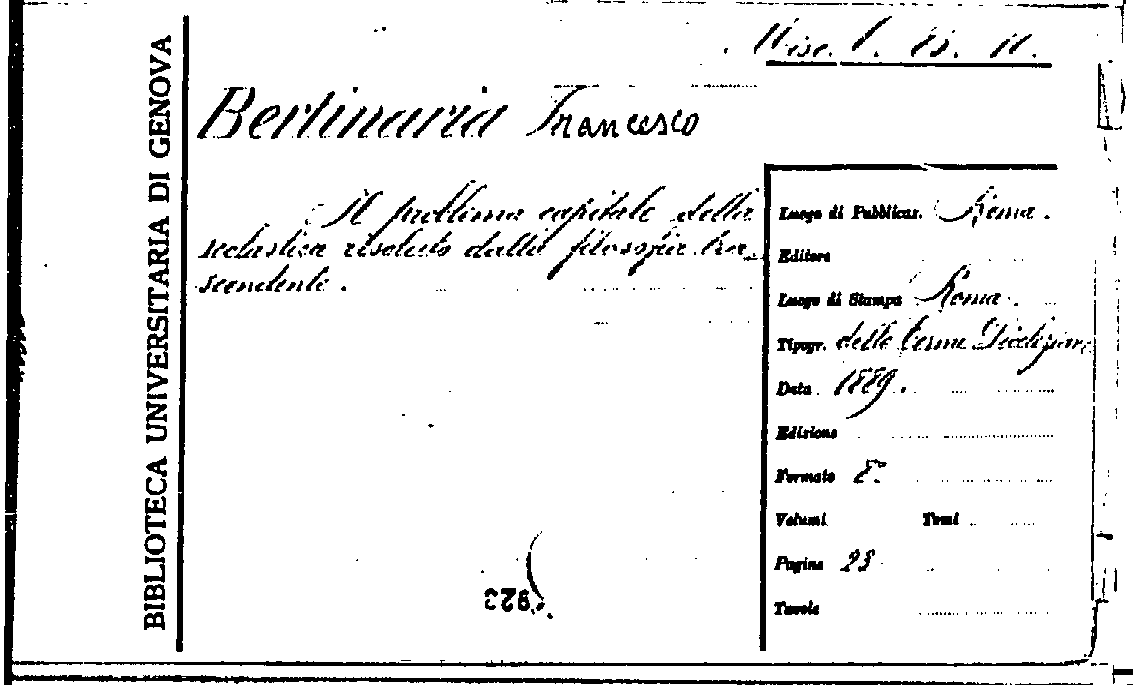 BIBLIOTECA UNIVERSITARIA DI GENOVA
Misc. 
Bertinaria Francesco
Il problema capitale della
scolastica risoluto dalla filosofia tra_
scendente.
Luogo di Pubblicaz. Roma.
Editore
Luogo di Stampa Roma.
Tipogr. delle Terme Diocleziane
Data 1889.
Edizione
Formato 8°
Volumi Tomi
Pagine 23
Tavole